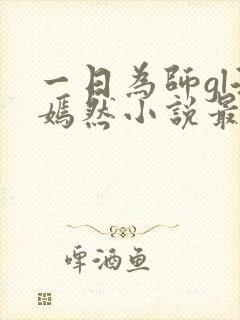 一日為師gl
嫣然小說最
啤酒鱼